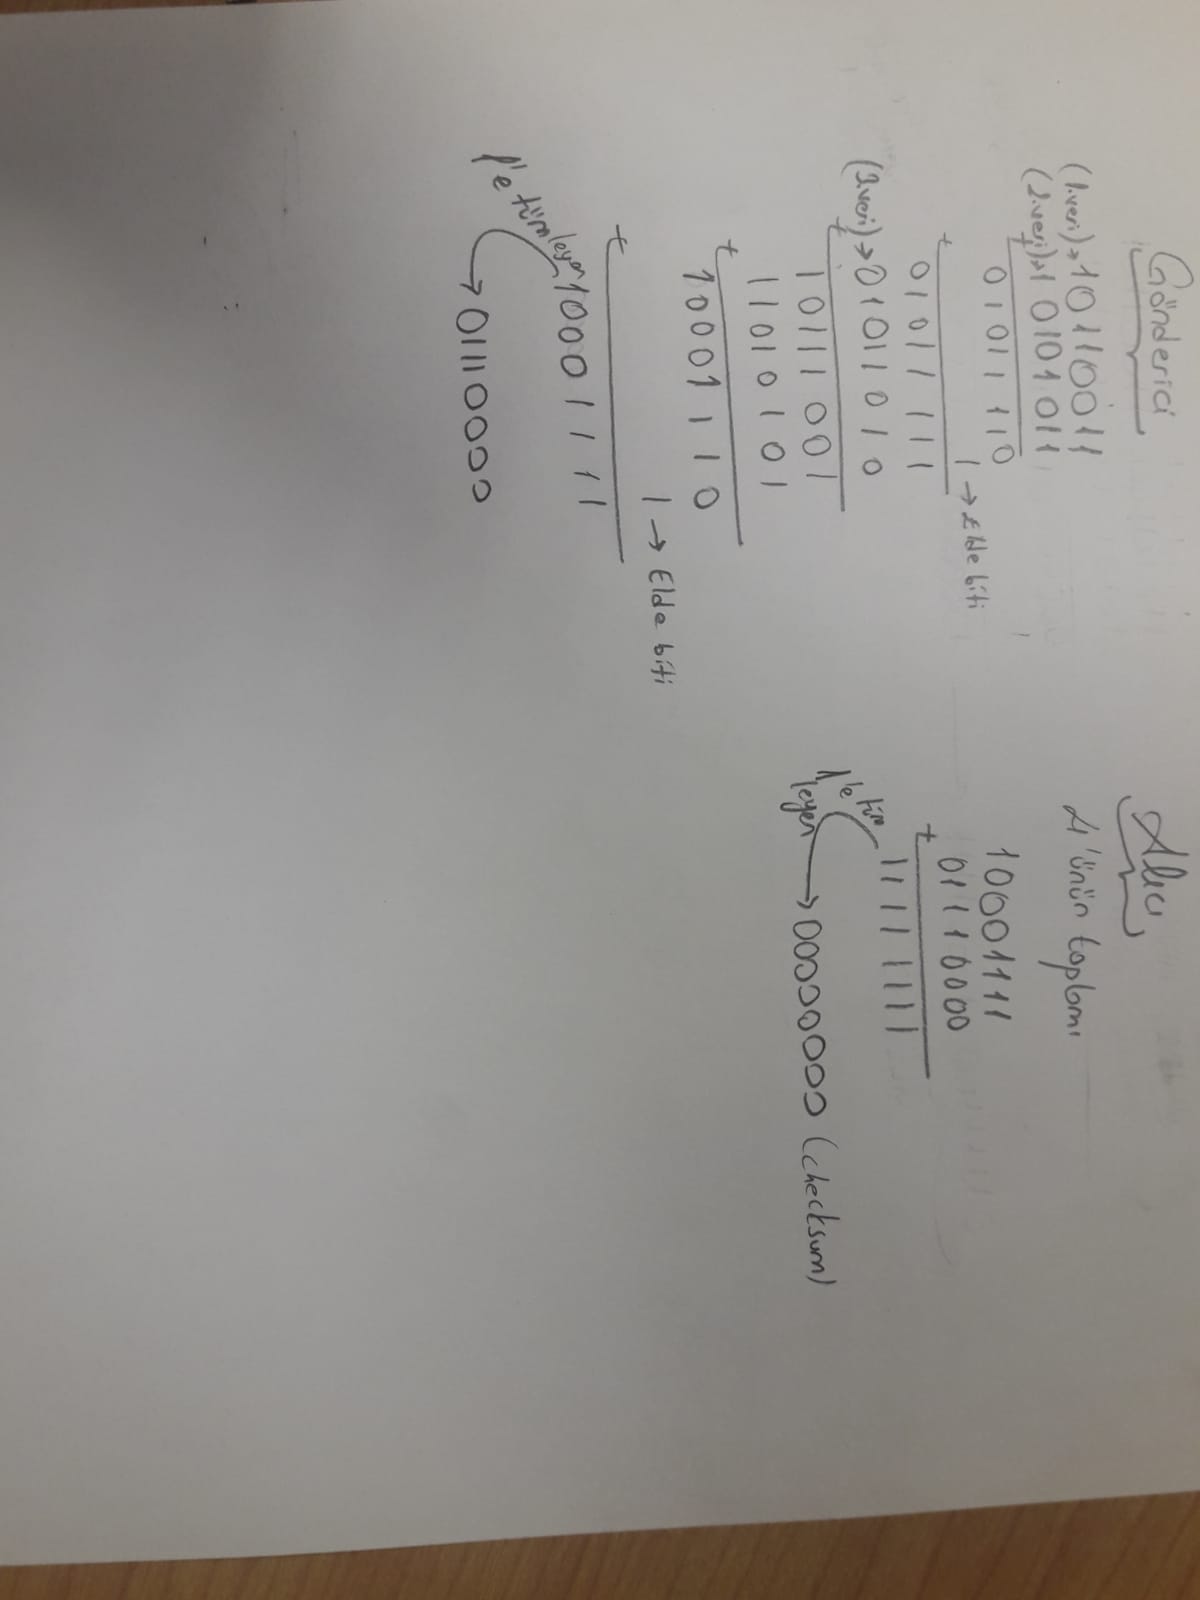 Gönderici
(1.veri)→10110011
(2.veri)→10101011
+
01011110
1→Elde biti
+
01011111
(3.veri)→01011010
+
10111001
11010101
+
10001110
1→Elde biti
+
10001111
1'e tümleyen
→01110000
Alıcı
4'ünün toplamı
10001111
01110000
+
11111111
1'e tüm
leyen→00000000 (checksum)